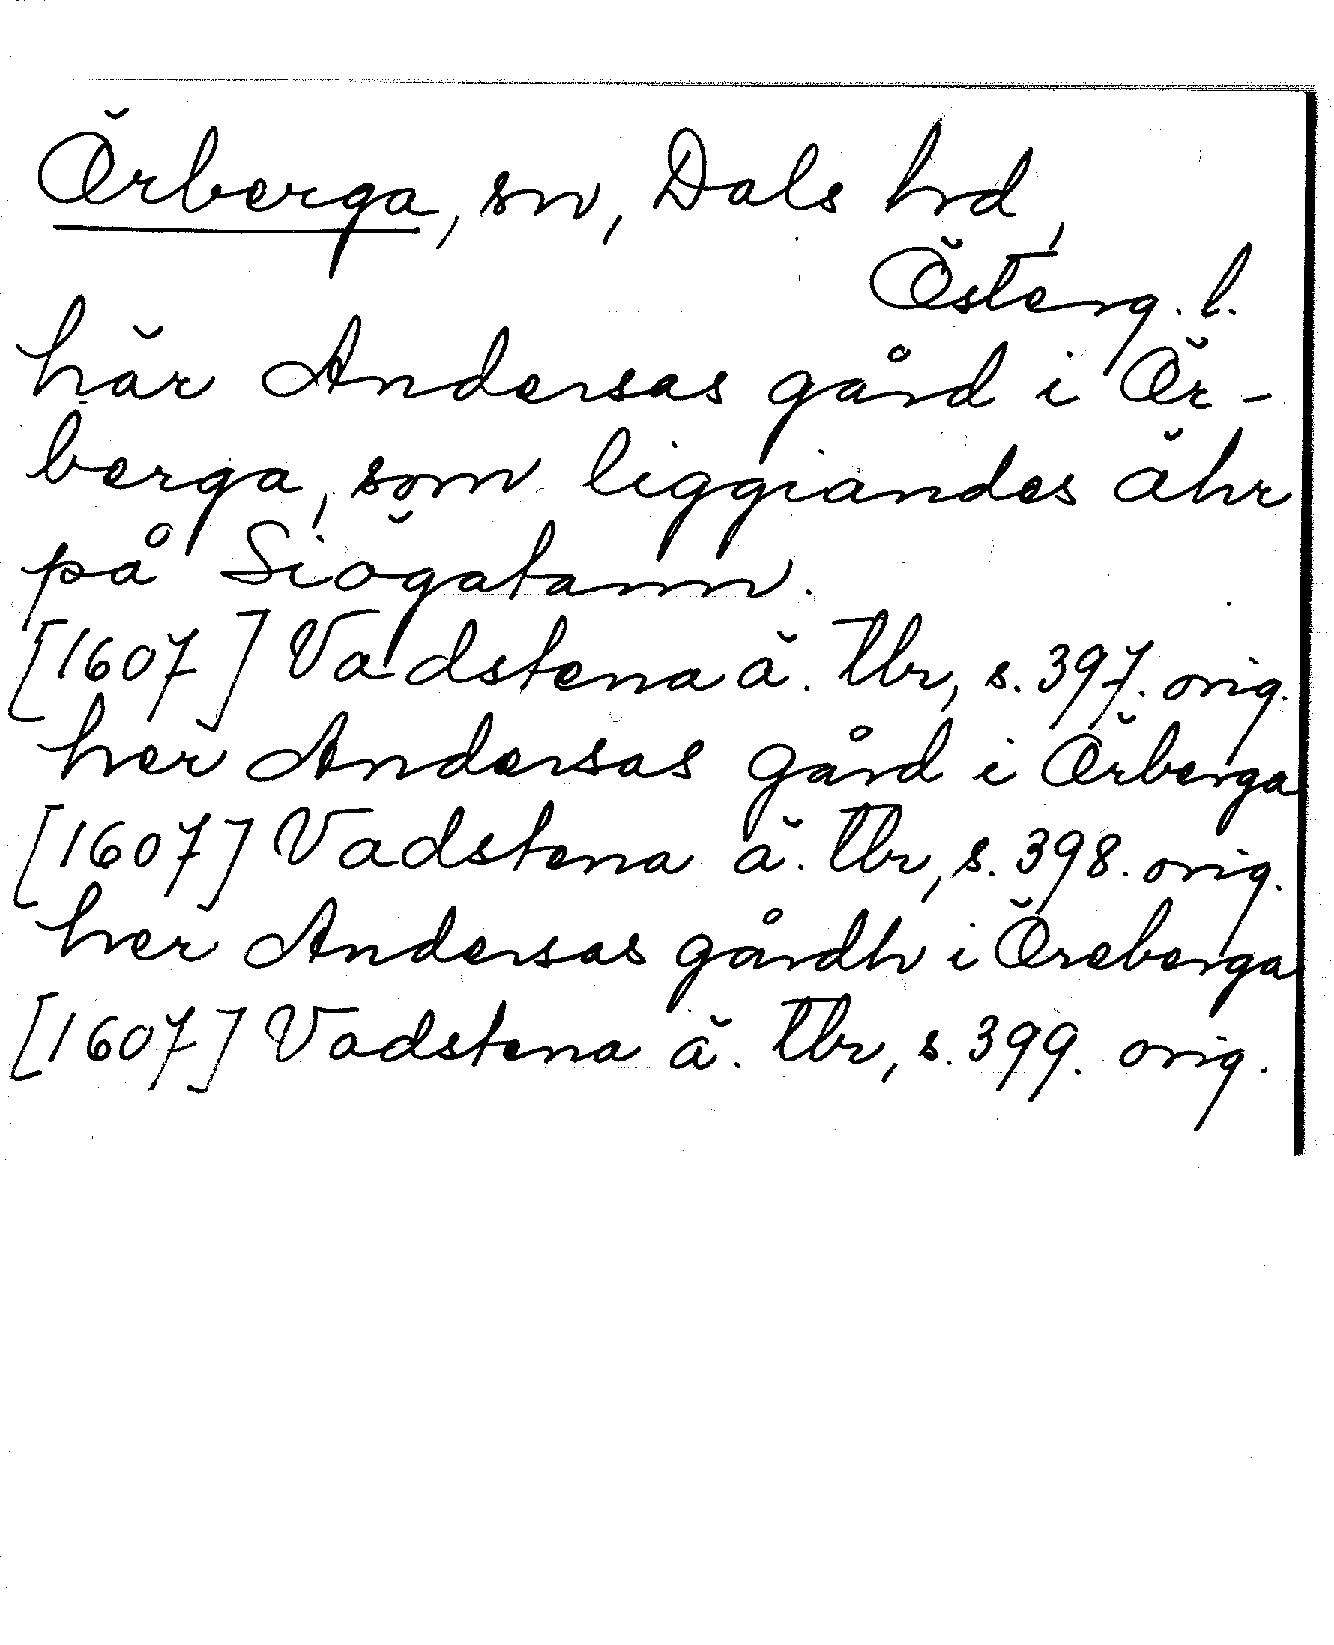 Örberga, sn, Dals hrd,
Österg. l.
här Andersas gård i Ör-
berga, som liggiandes ähr
på Siögatann.
[1607] Vadstena ä. tbr, s. 397. orig.
her Andersas gård i Örberga
[1607] Vadstena ä. tbr, s. 398. orig.
her Andersas gårdh i Öreberga
[1607] Vadstena ä. tbr, s. 399. orig.